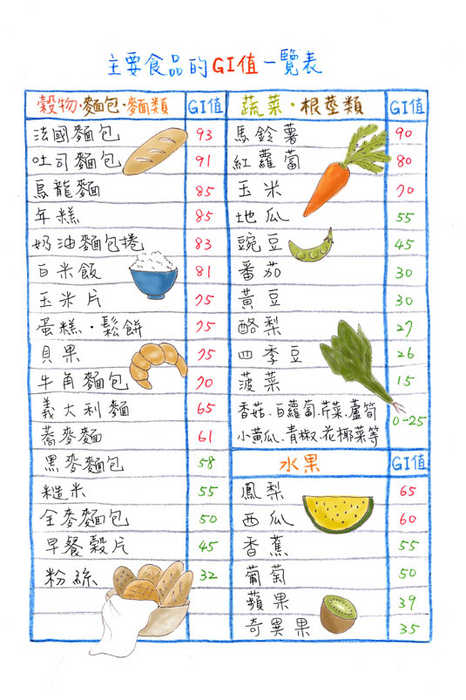 主要食品的GI值一覽表
穀物·麵包·麵類 GI值
法國麵包 93
吐司麵包 91
烏龍麵 85
年糕 85
奶油麵包捲 83
白米飯 81
玉米片 75
蛋糕·鬆餅 75
貝果 75
牛角麵包 70
義大利麵 65
蕎麥麵 61
黑麥麵包 58
糙米 55
全麥麵包 50
早餐穀片 45
粉絲 32
蔬菜·根莖類 GI值
馬鈴薯 90
紅蘿蔔 80
玉米 70
地瓜 55
豌豆 45
番茄 30
黃豆 30
酪梨 27
四季豆 26
菠菜 15
香菇.白蘿蔔.芹菜.蘆筍
小黃瓜.青椒.花椰菜等 0-25
水果 GI值
鳳梨 65
西瓜 60
香蕉 55
葡萄 50
蘋果 39
奇異果 35